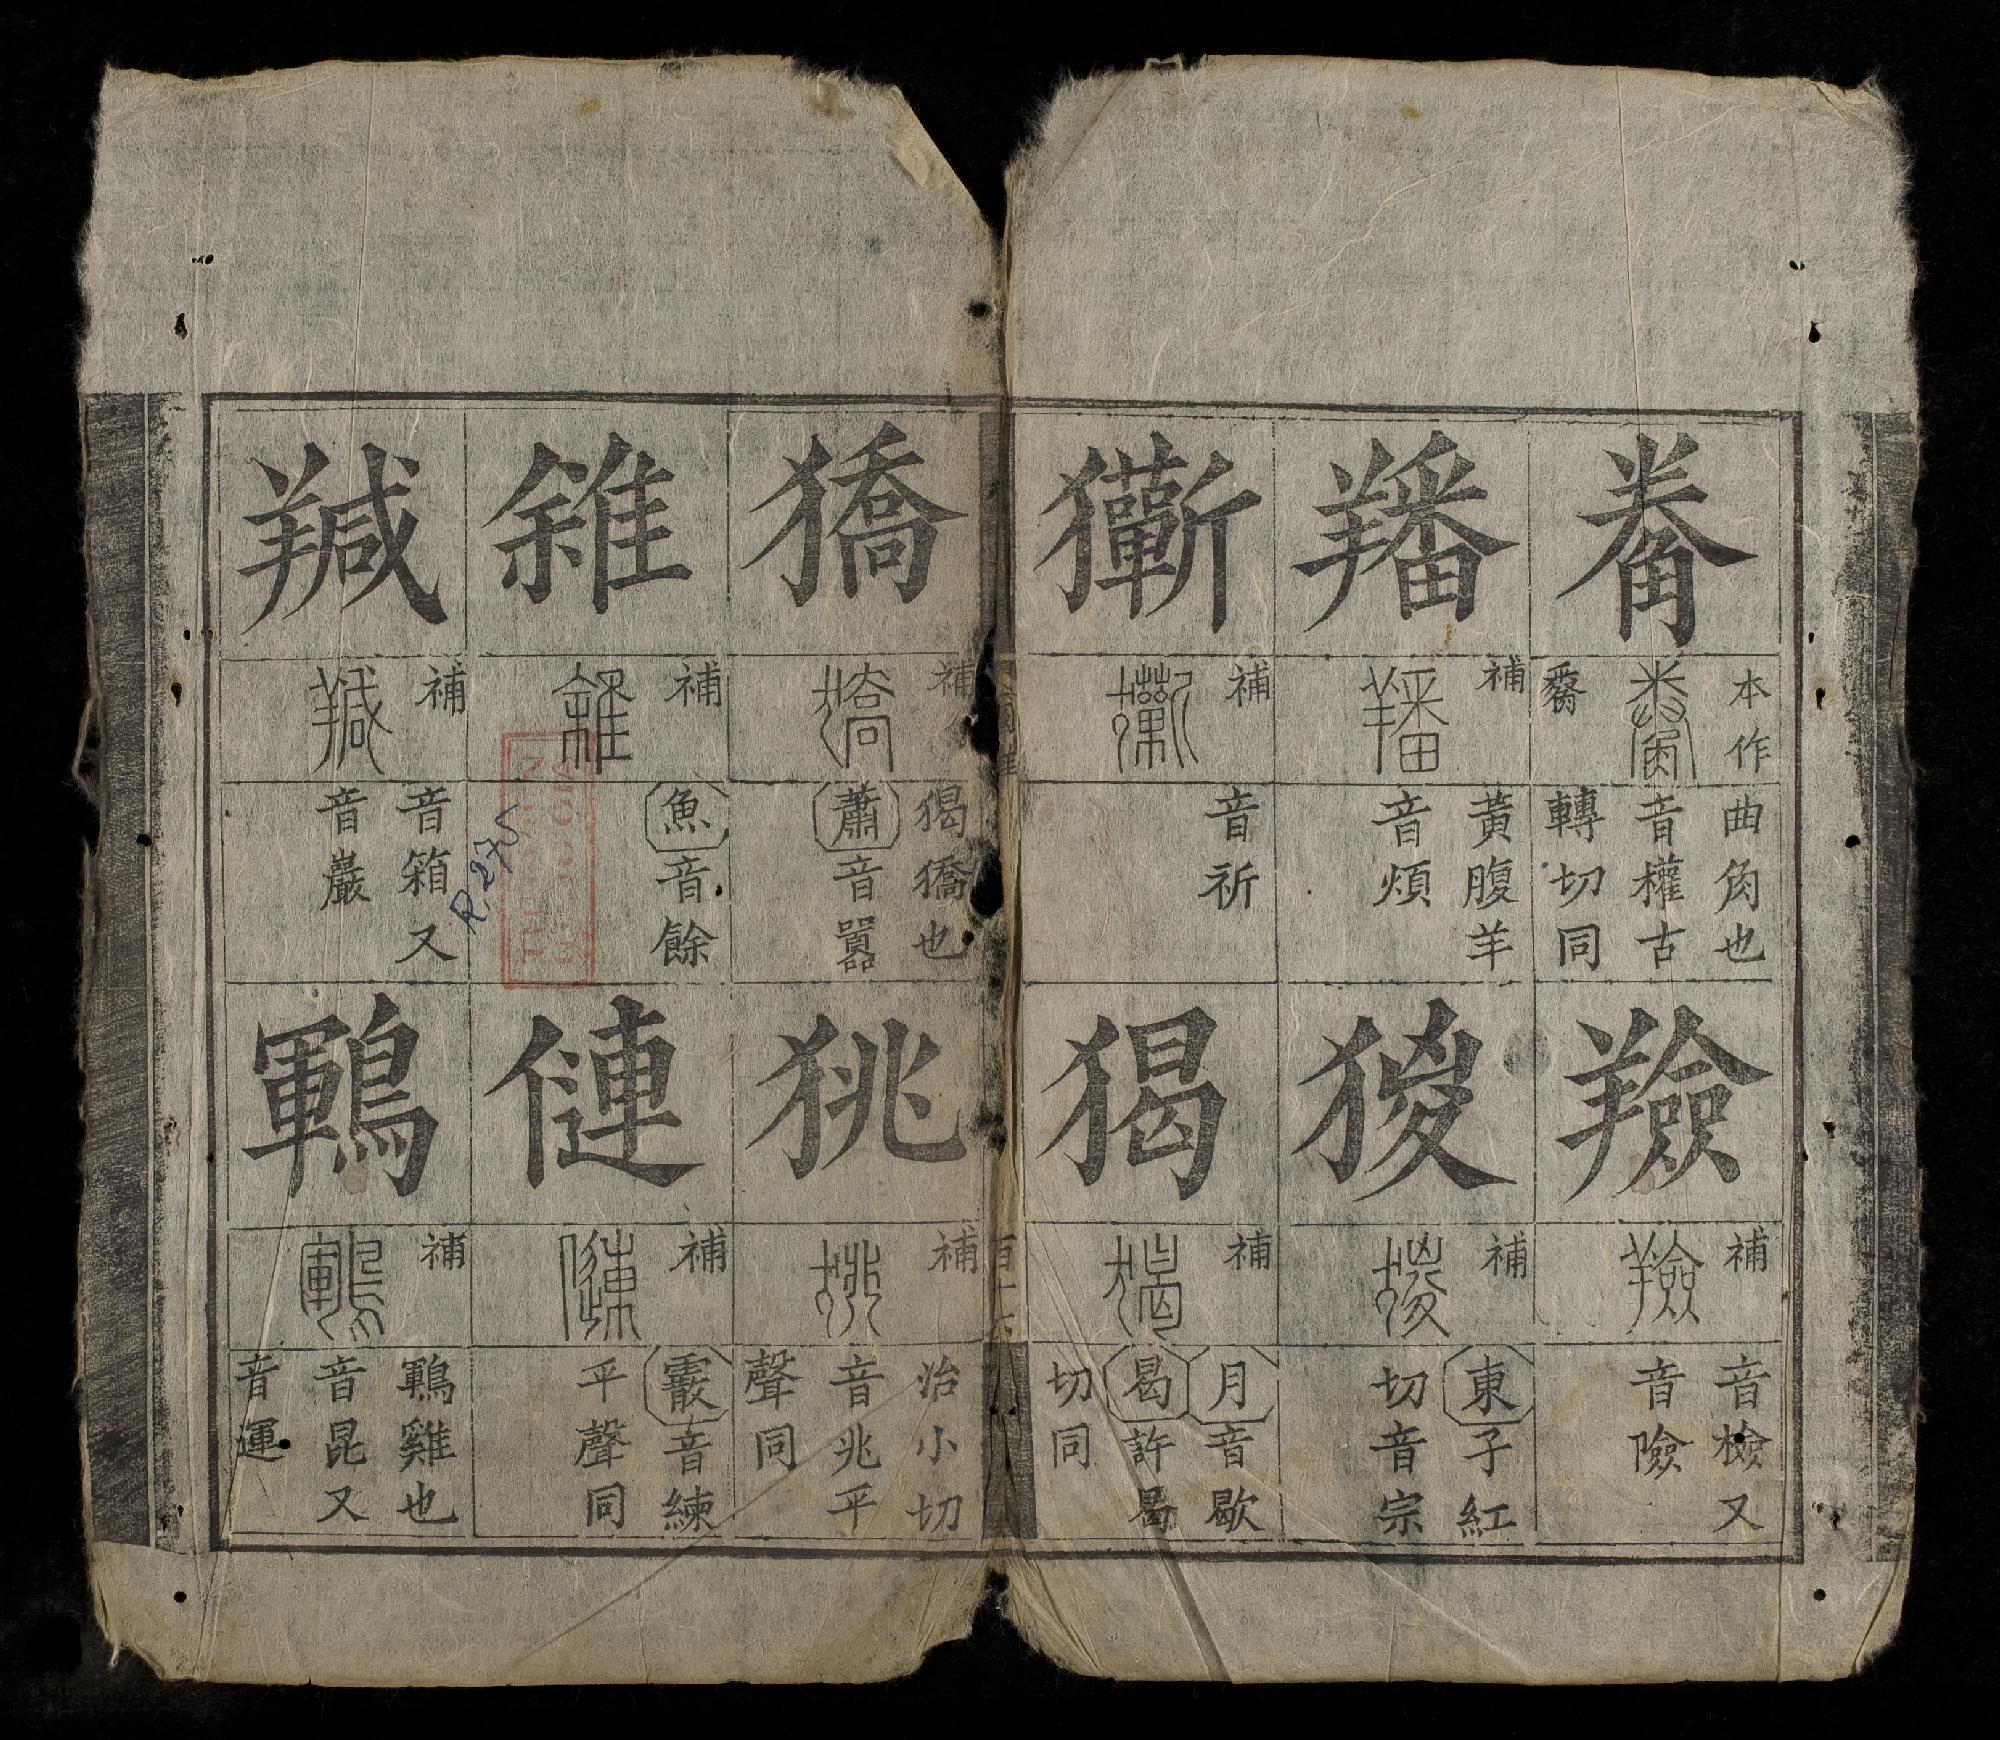 觠
本作
𢍏
曲角也
音權古
轉切同
羷
補
音檢又
音險
羳
補
黃腹羊
音煩
猣
補
東子紅
切音宗
補
音祈
猲
補
月音歇
曷許曷
切同
獢
補
猲獢也
蕭音囂
狣
補
治小切
音兆平
聲同
雓
補
魚音餘
僆
補
霰音練
平聲同
羬
補
音箱又
音巖
鶤
補
鶤雞也
音昆又
音運
百十六
R.275